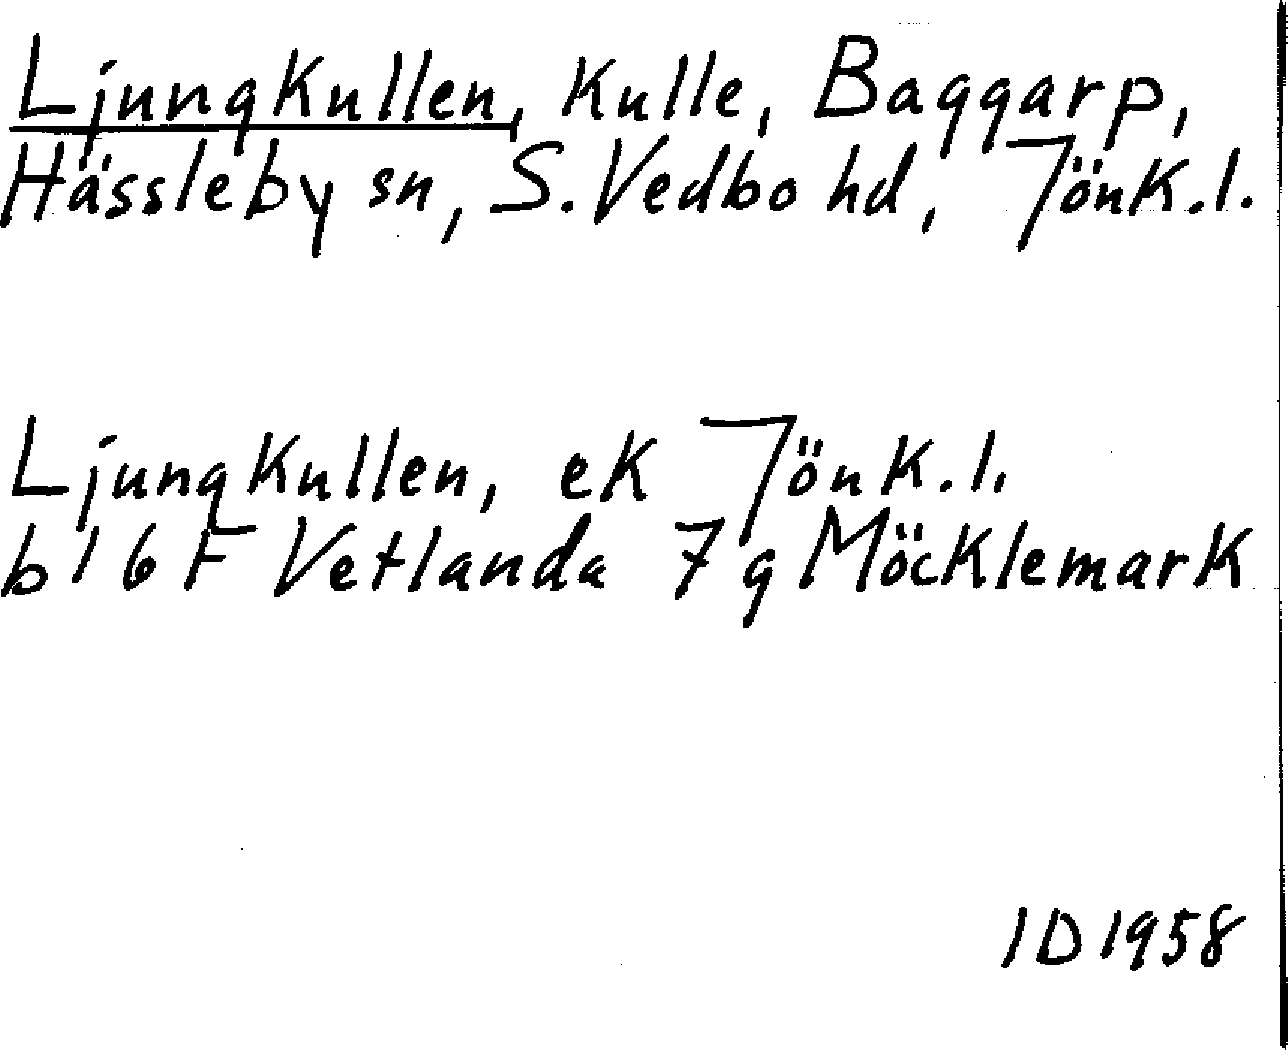 Ljungkullen, Kulle, Baggarp,
Hässleby sn, S. Vedbo hd, Jönk. l.
Ljungkullen, ek Jönk. l.
bl 6 F Vetlanda 7 g Möcklemark
ID 1958